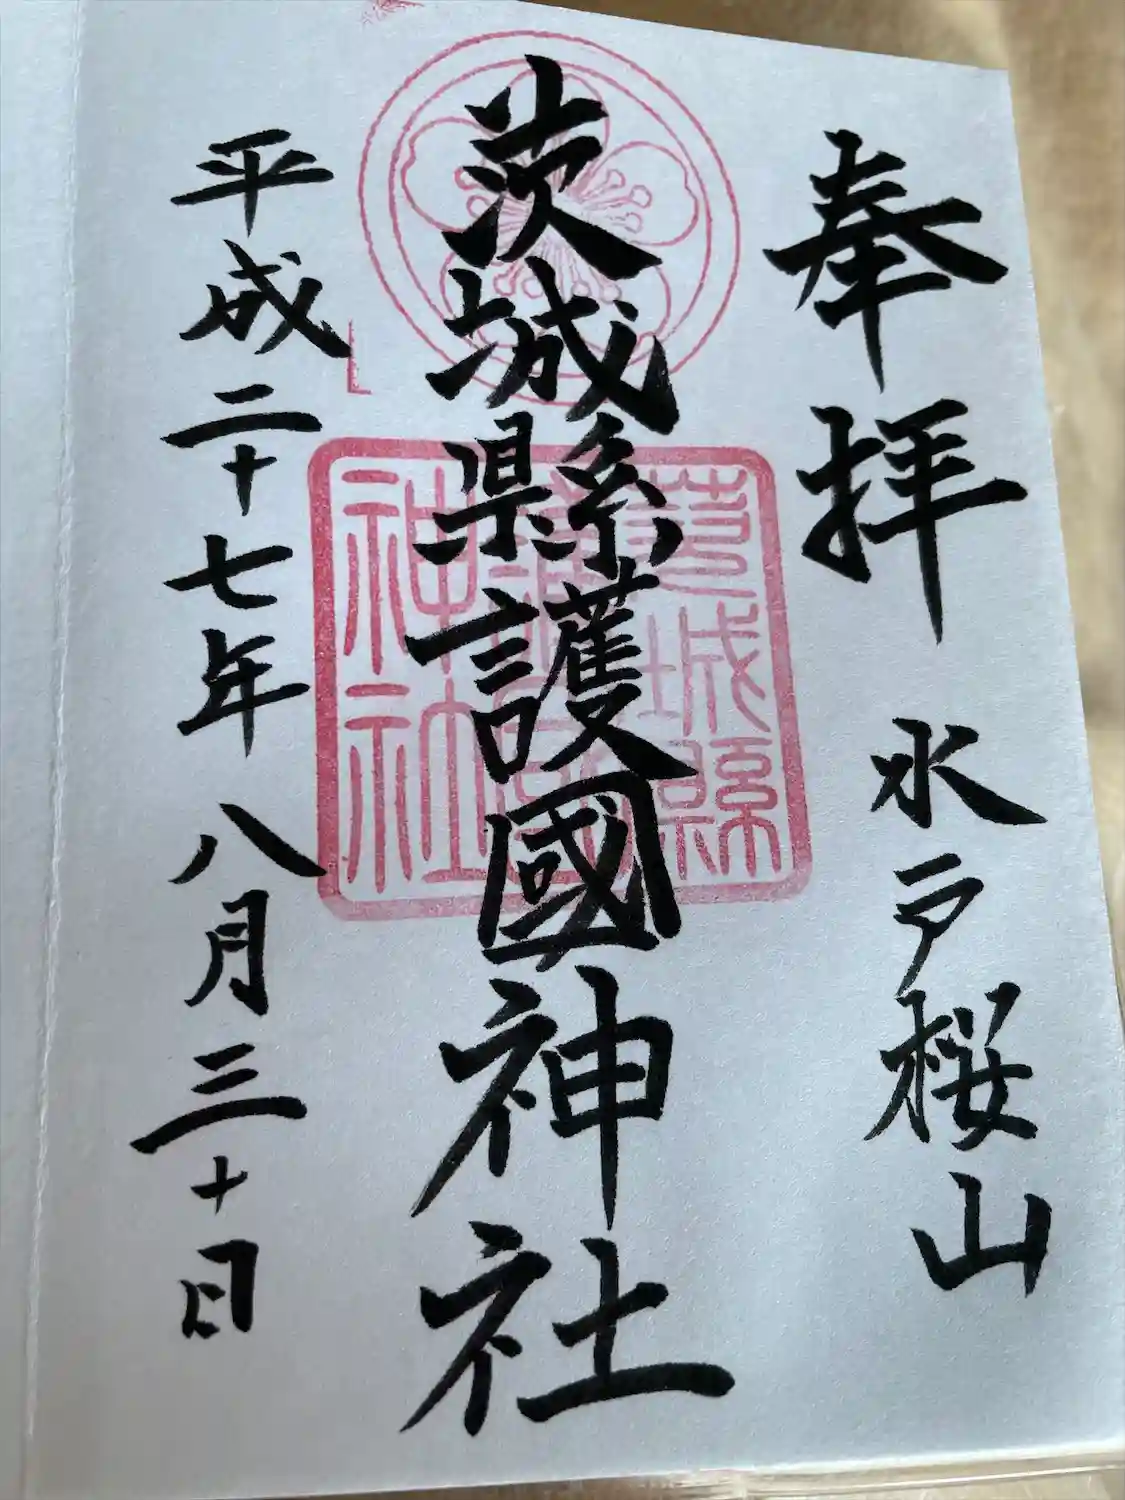 奉拝 水戸桜山
茨城縣護國神社
平成二十七年八月三十日
茨城縣
護國
神社